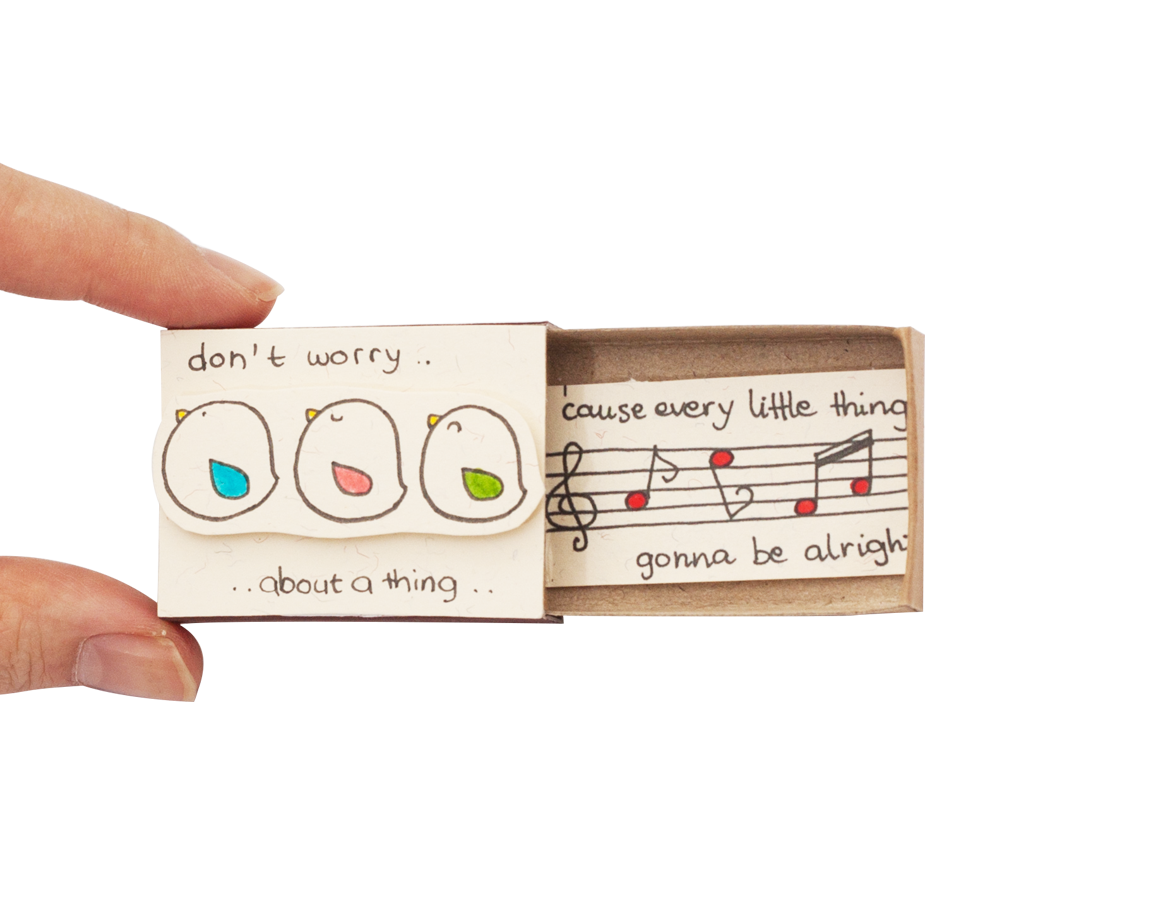 don't worry ..
..about a thing ..
'cause every little thing
gonna be alrigh